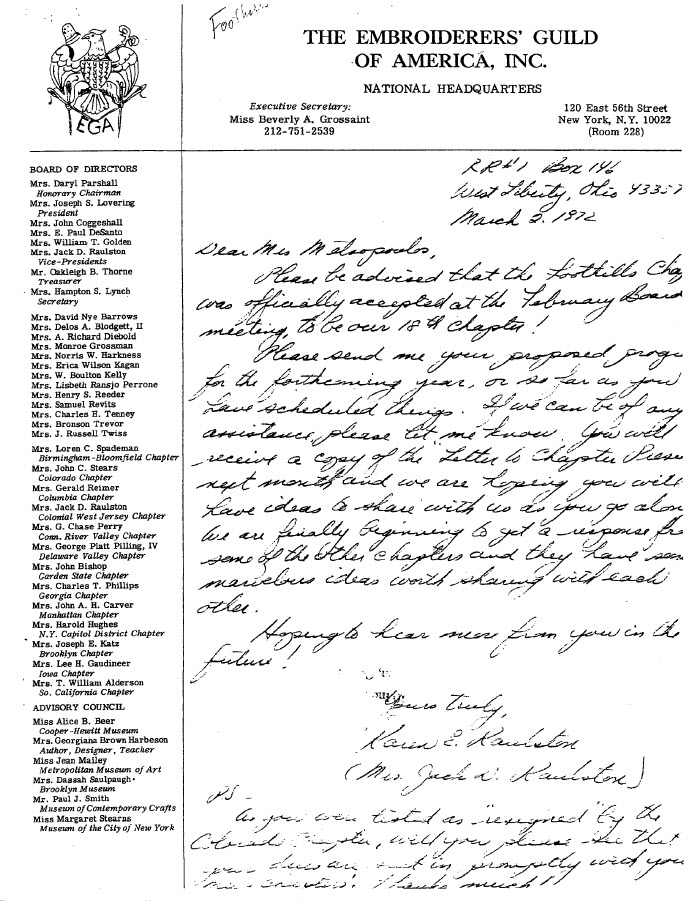 Foothills
EGA
THE EMBROIDERERS' GUILD
OF AMERICA, INC.
NATIONAL HEADQUARTERS
Executive Secretary:
Miss Beverly A. Grossaint
212-751-2539
120 East 56th Street
New York, N.Y. 10022
(Room 228)
BOARD OF DIRECTORS
Mrs. Daryl Parshall
Honorary Chairman
Mrs. Joseph S. Lovering
President
Mrs. John Coggeshall
Mrs. E. Paul DeSanto
Mrs. William T. Golden
Mrs. Jack D. Raulston
Vice-Presidents
Mr. Oakleigh B. Thorne
Treasurer
Mrs. Hampton S. Lynch
Secretary
Mrs. David Nye Barrows
Mrs. Delos A. Blodgett, II
Mrs. A. Richard Diebold
Mrs. Monroe Grossman
Mrs. Norris W. Harkness
Mrs. Erica Wilson Kagan
Mrs. W. Boulton Kelly
Mrs. Lisbeth Ransjo Perrone
Mrs. Henry S. Reeder
Mrs. Samuel Revits
Mrs. Charles H. Tenney
Mrs. Bronson Trevor
Mrs. J. Russell Twiss
Mrs. Loren C. Spademan
Birmingham-Bloomfield Chapter
Mrs. John C. Stears
Colorado Chapter
Mrs. Gerald Reimer
Columbia Chapter
Mrs. Jack D. Raulston
Colonial West Jersey Chapter
Mrs. G. Chase Perry
Conn. River Valley Chapter
Mrs. George Platt Pilling, IV
Delaware Valley Chapter
Mrs. John Bishop
Garden State Chapter
Mrs. Charles T. Phillips
Georgia Chapter
Mrs. John A. H. Carver
Manhattan Chapter
Mrs. Harold Hughes
N.Y. Capitol District Chapter
Mrs. Joseph E. Katz
Brooklyn Chapter
Mrs. Lee H. Gaudineer
Iowa Chapter
Mrs. T. William Alderson
So. California Chapter
ADVISORY COUNCIL
Miss Alice B. Beer
Cooper-Hewitt Museum
Mrs. Georgiana Brown Harbeson
Author, Designer, Teacher
Miss Jean Mailey
Metropolitan Museum of Art
Mrs. Dassah Saulpaugh
Brooklyn Museum
Mr. Paul J. Smith
Museum of Contemporary Crafts
Miss Margaret Stearns
Museum of the City of New York
RR#1 Box 146
West Liberty, Ohio 43357
March 2, 1972
Dear Mrs
Please be advised that the Foothills Chap
was officially accepted at the February Board
meeting, to be our 18th chapter!
Please send me your proposed progr
for the forthcoming year, or so far as you
have scheduled things. If we can be of any
assistance, please let me know. You will
receive a copy of the Letter to Chapter Prese
next month and we are hoping you will
have ideas to share with us as you go alon
We are finally beginning to get a response fr
some of the other chapters and they have sen
marvelous ideas worth sharing with each
other.
Hoping to hear more from you in the
future!
Yours truly,
Karen E. Raulston
(Mrs. Jack D. Raulston)
PS -
As you were listed as "resigned" by the
Colorado Chapter, will you please see that
your dues are sent in promptly with your
Thanks much!!